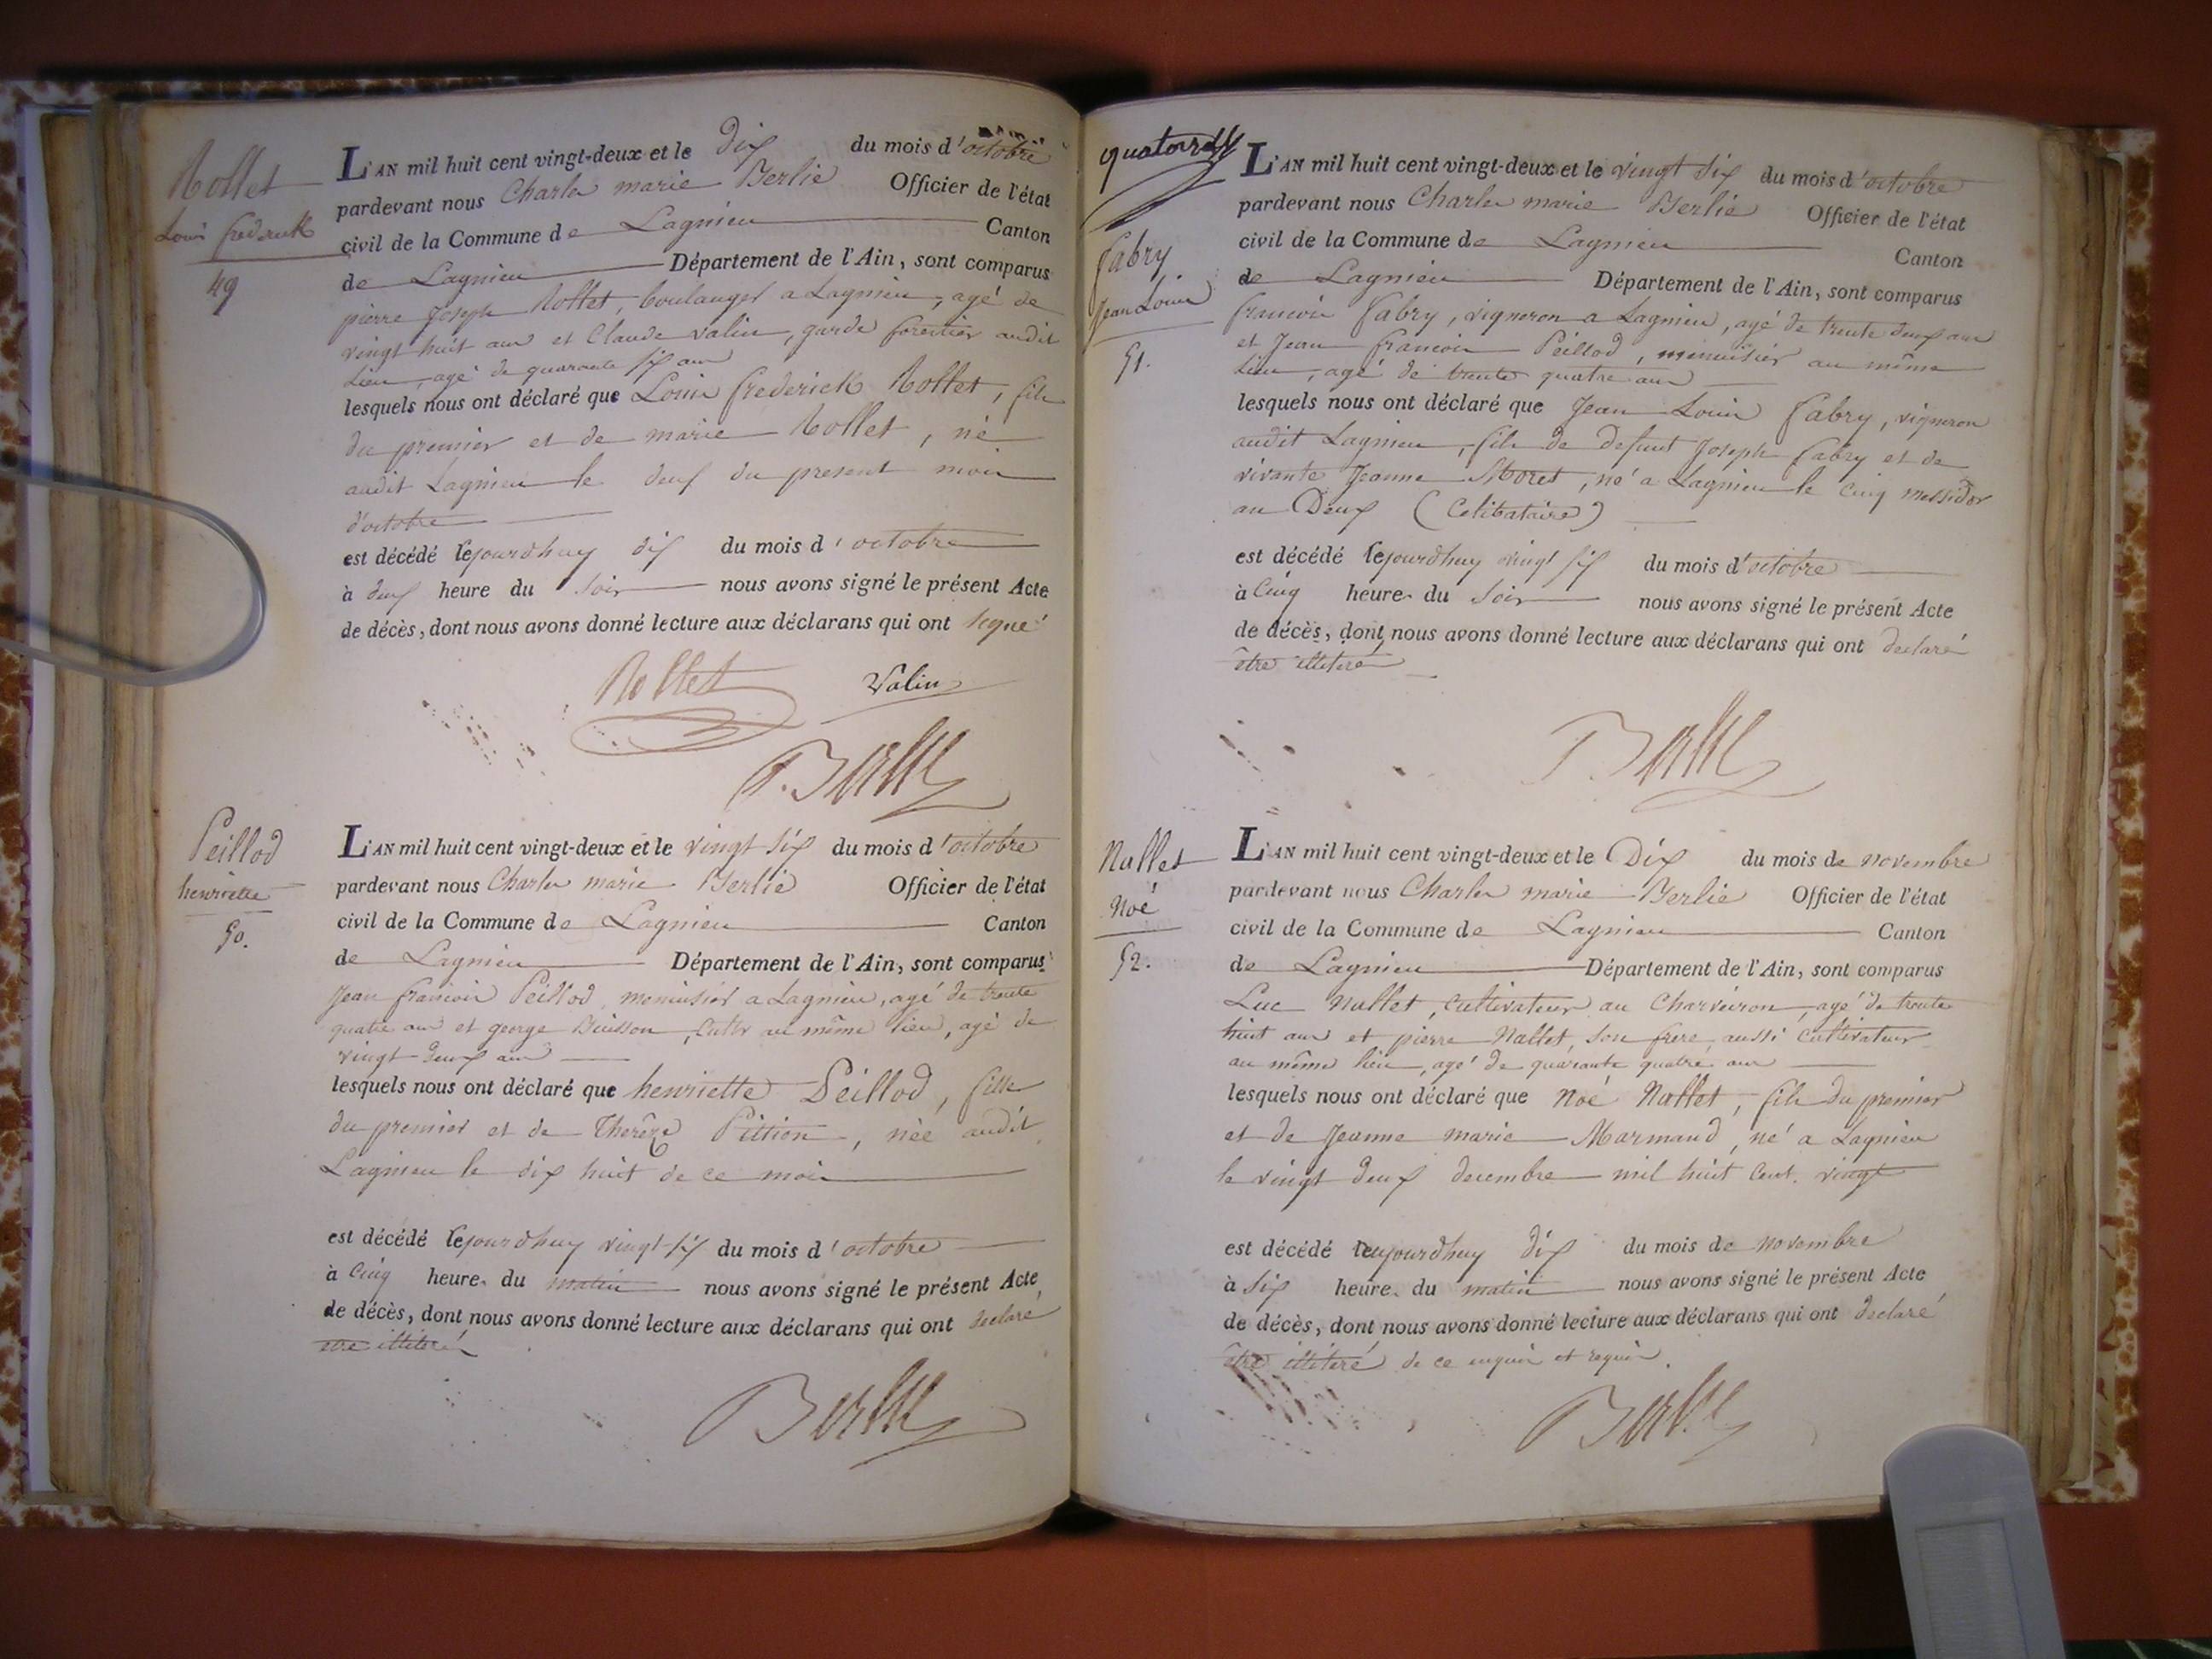 Rollet
Louis frederick
49
L'AN mil huit cent vingt-deux et le Dix du mois d'octobre
pardevant nous Charles marie Berlie Officier de l'état
civil de la Commune de Lagnieu Canton
de Lagnieu Département de l'Ain, sont comparus
pierre Joseph Rollet, boulanger a Lagnieu, agé de
vingt huit ans et Claude Valin, garde forestier audit
Lieu, agé de quarante six ans
lesquels nous ont déclaré que Louis frederick Rollet, fils
du premier et de marie Rollet, né
audit Lagnieu le deux du present mois
d'octobre
est décédé lejourdhuy dix du mois d'octobre
à deux heure du soir nous avons signé le présent Acte
de décès, dont nous avons donné lecture aux déclarans qui ont signé
Rollet Valin
Berlie
Peillod
henriette
50.
L'AN mil huit cent vingt-deux et le vingt six du mois d'octobre
pardevant nous Charles marie Berlie Officier de l'état
civil de la Commune de Lagnieu Canton
de Lagnieu Département de l'Ain, sont comparus
Jean francois Peillod menuisier a Lagnieu, agé de trente
quatre ans et george Buisson, Cultr au même lieu, agé de
vingt deux ans
lesquels nous ont déclaré que henriette Peillod, fille
du premier et de Therèze Pittion, née audit
Lagnieu le dix huit de ce mois
est décédé lejourdhuy vingt six du mois d'octobre
à Cinq heure. du matin nous avons signé le présent Acte
de décès, dont nous avons donné lecture aux déclarans qui ont declaré
etre illiteré
Berlie
quatorze
fabry
Jean Louis
51.
L'AN mil huit cent vingt-deux et le vingt six du mois d'octobre
pardevant nous Charles marie Berlie Officier de l'état
civil de la Commune de Lagnieu Canton
de Lagnieu Département de l'Ain, sont comparus
francois fabry, vigneron a Lagnieu, agé de trente deux ans
et Jean francois Peillod, menuisier au même
Lieu, agé de trente quatre ans
lesquels nous ont déclaré que Jean Louis fabry, vigneron
audit Lagnieu, fils de defunt Joseph fabry et de
vivante Jeanne Moret, né a Lagnieu le cinq messidor
an Deux (Celibataire)
est décédé lejourdhuy vingt six du mois d'octobre
à Cinq heure. du soir nous avons signé le présent Acte
de décès, dont nous avons donné lecture aux déclarans qui ont declaré
être illiteré
Berlie
Nallet
Noé
52.
L'AN mil huit cent vingt-deux et le Dix du mois de novembre
pardevant nous Charles marie Berlie Officier de l'état
civil de la Commune de Lagnieu Canton
de Lagnieu Département de l'Ain, sont comparus
Luc Nallet, Cultivateur au Charveiron, agé de trente
huit ans et pierre Nallet, son frere, aussi Cultivateur
au même lieu, agé de quarante quatre ans
lesquels nous ont déclaré que Noé Nallet, fils du premier
et de Jeanne marie Marmand, né a Lagnieu
le vingt deux decembre mil huit Cent. vingt
est décédé lejourdhuy dix du mois de novembre
à six heure. du matin nous avons signé le présent Acte
de décès, dont nous avons donné lecture aux déclarans qui ont declaré
être illiteré de ce enquis et requis.
Berlie